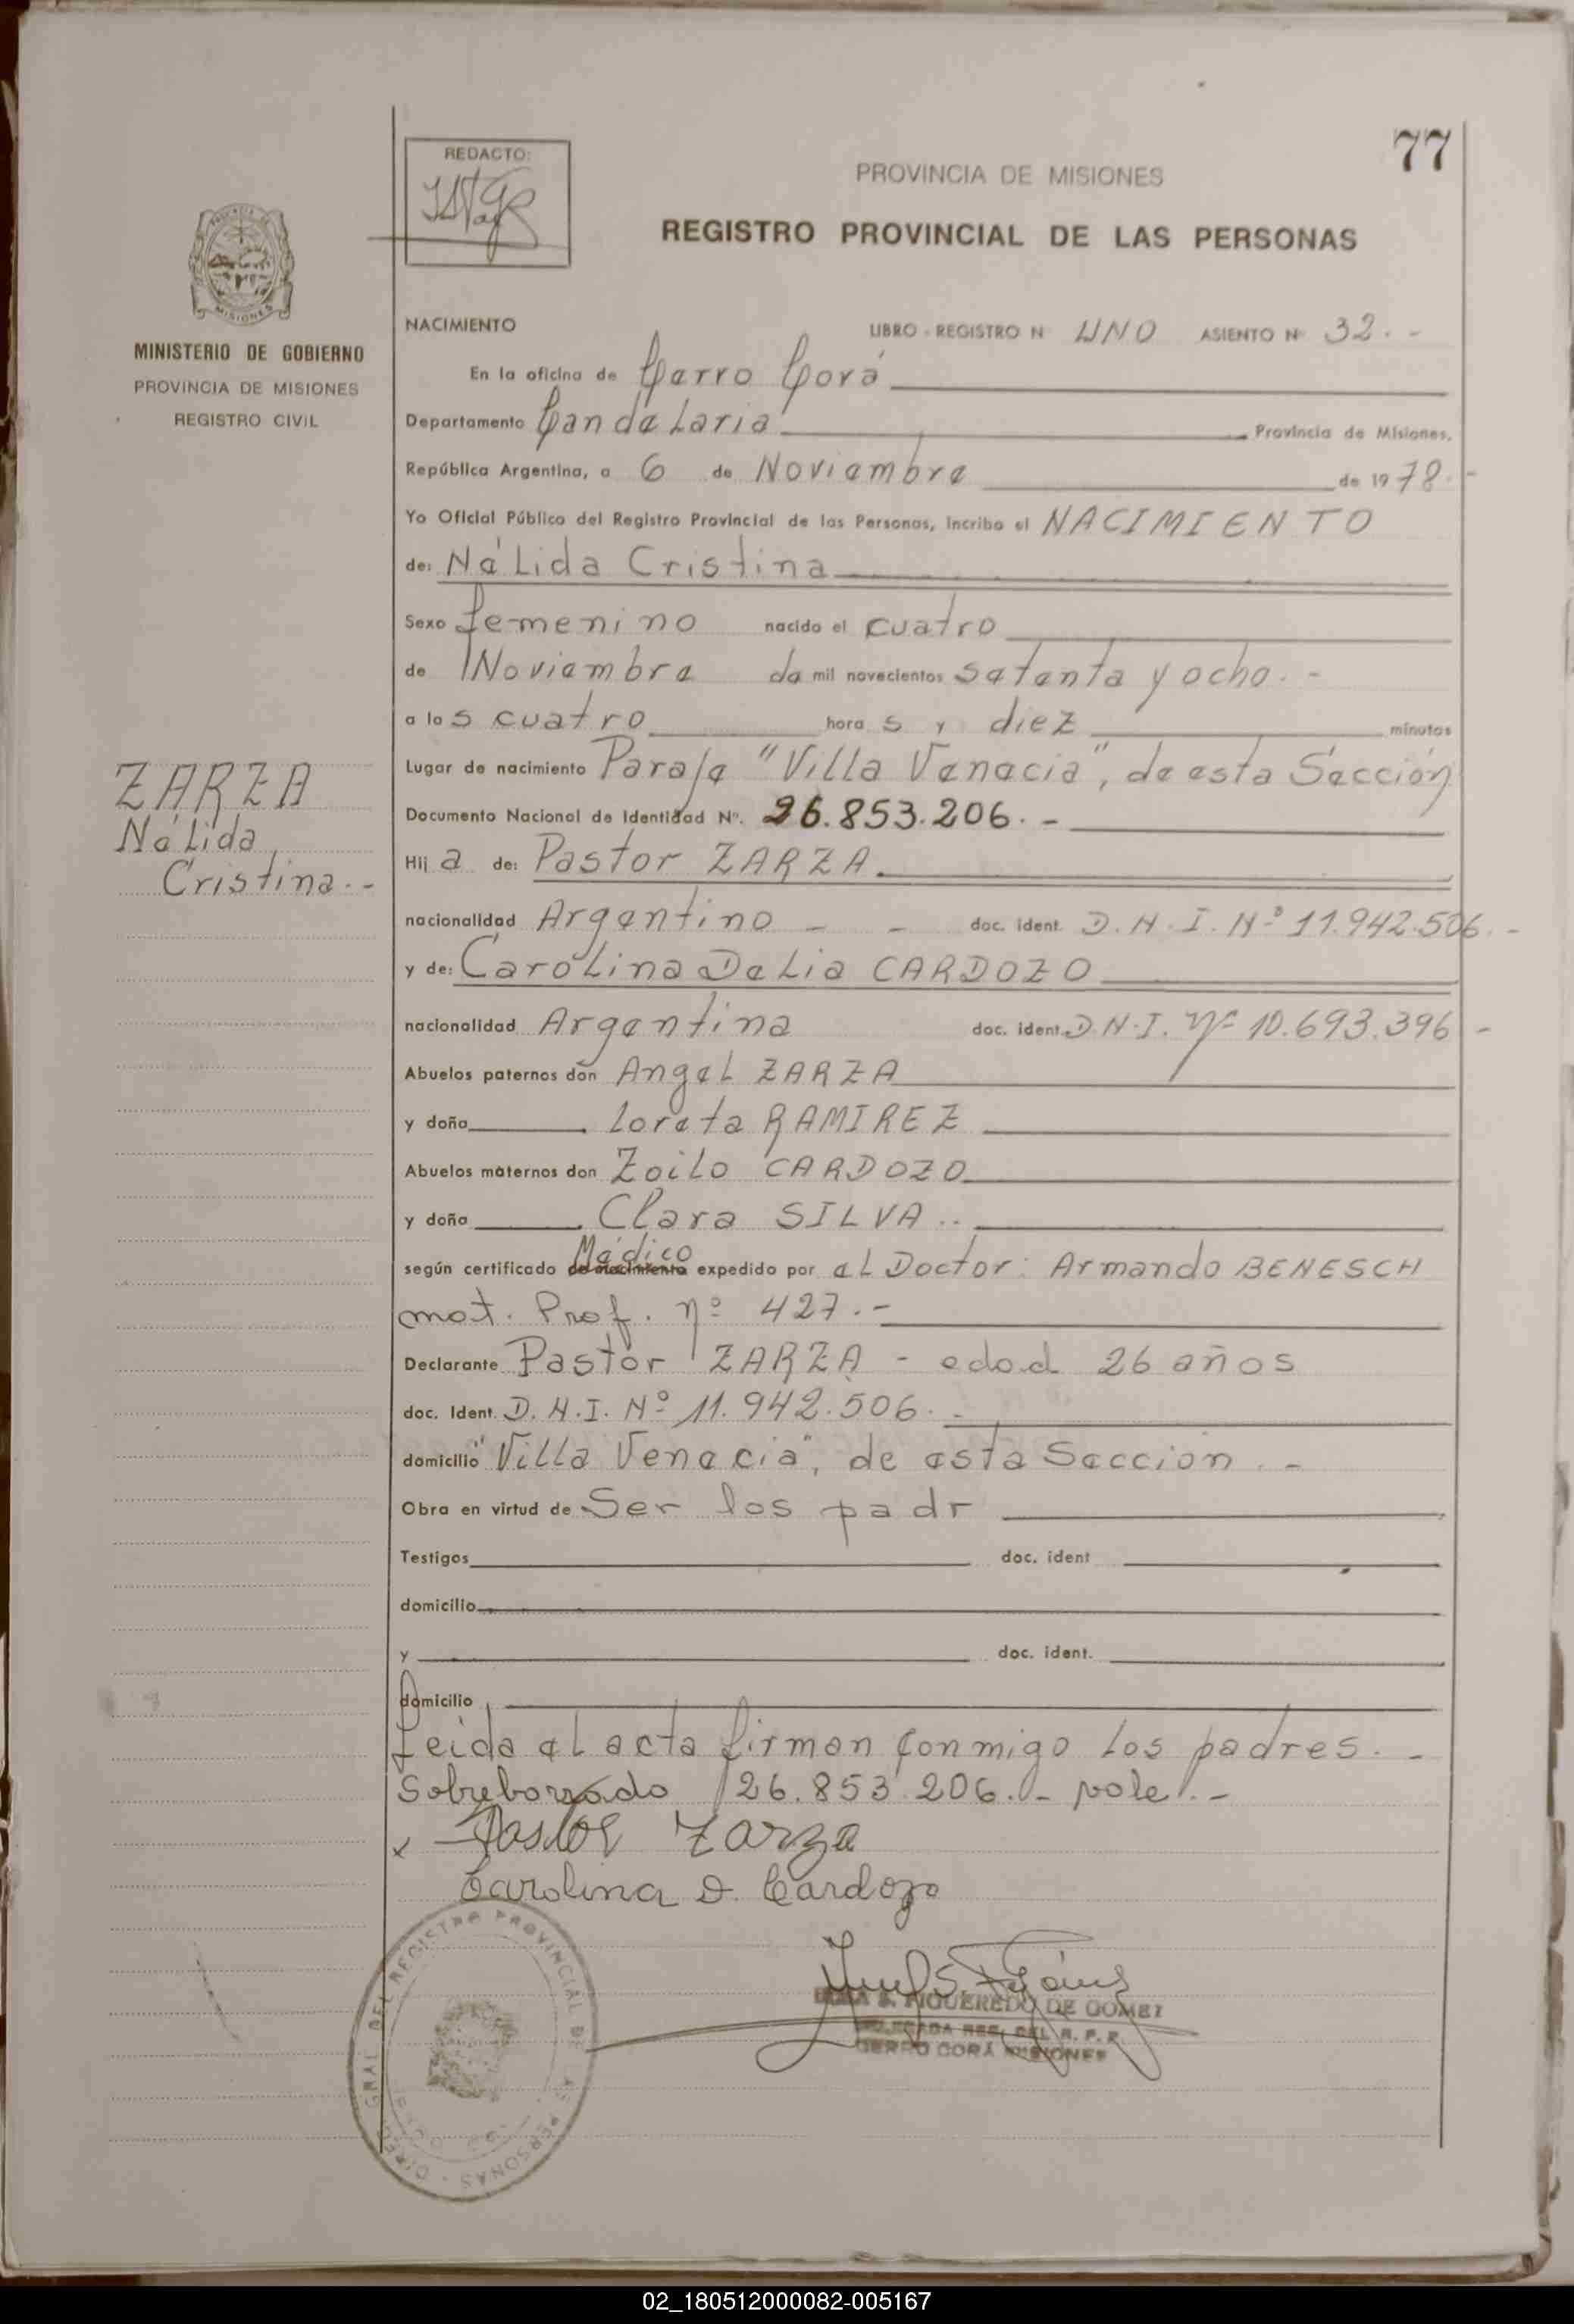 77
REDACTO:
PROVINCIA DE MISIONES
REGISTRO PROVINCIAL DE LAS PERSONAS
MISIONES
MINISTERIO DE GOBIERNO
PROVINCIA DE MISIONES
REGISTRO CIVIL
NACIMIENTO LIBRO - REGISTRO N UNO ASIENTO Nº 32. -
En la oficina de Cerro Corá
Departamento Candelaria Provincia de Misiones,
República Argentina, a 6 de Noviembre de 1978.-
Yo Oficial Público del Registro Provincial de las Personas, incribo el NACIMIENTO
de: Nélida Cristina
Sexo femenino nacido el cuatro
de Noviembre de mil novecientos setenta y ocho. -
a las cuatro horas y diez minutos
Lugar de nacimiento Paraje "Villa Venecia", de esta Sección
Documento Nacional de Identidad Nº. 26.853.206. -
Hija de: Pastor ZARZA
nacionalidad Argentino - - doc. ident. D.N.I. Nº 11.942.506. -
y de: Carolina Delia CARDOZO
nacionalidad Argentina doc. ident. D.N.I. Nº 10.693.396 -
Abuelos paternos don Angel ZARZA
y doña Loreta RAMIREZ
Abuelos maternos don Zoilo CARDOZO
y doña Clara SILVA..
según certificado de nacimiento Médico expedido por el Doctor: Armando BENESCH
mat. Prof. nº 427.-
Declarante Pastor ZARZA - edad 26 años
doc. Ident. D.N.I. Nº 11.942.506. -
domicilio "Villa Venecia", de esta Sección. -
Obra en virtud de Ser los padr
Testigos doc. ident
domicilio
y doc. ident.
domicilio
Leida el acta firman conmigo los padres. -
Sobreborrado 26.853.206.- vale.-
x Pastor Zarza
Carolina D. Cardozo
S. FIGUEREDO DE GOMEZ
DELEGADA RES. DEL R. P. P.
CERRO CORÁ MISIONES
DIREC. GRAL. DEL REGISTRO PROVINCIAL DE LAS PERSONAS
ZARZA
Nélida
Cristina. -
02_180512000082-005167